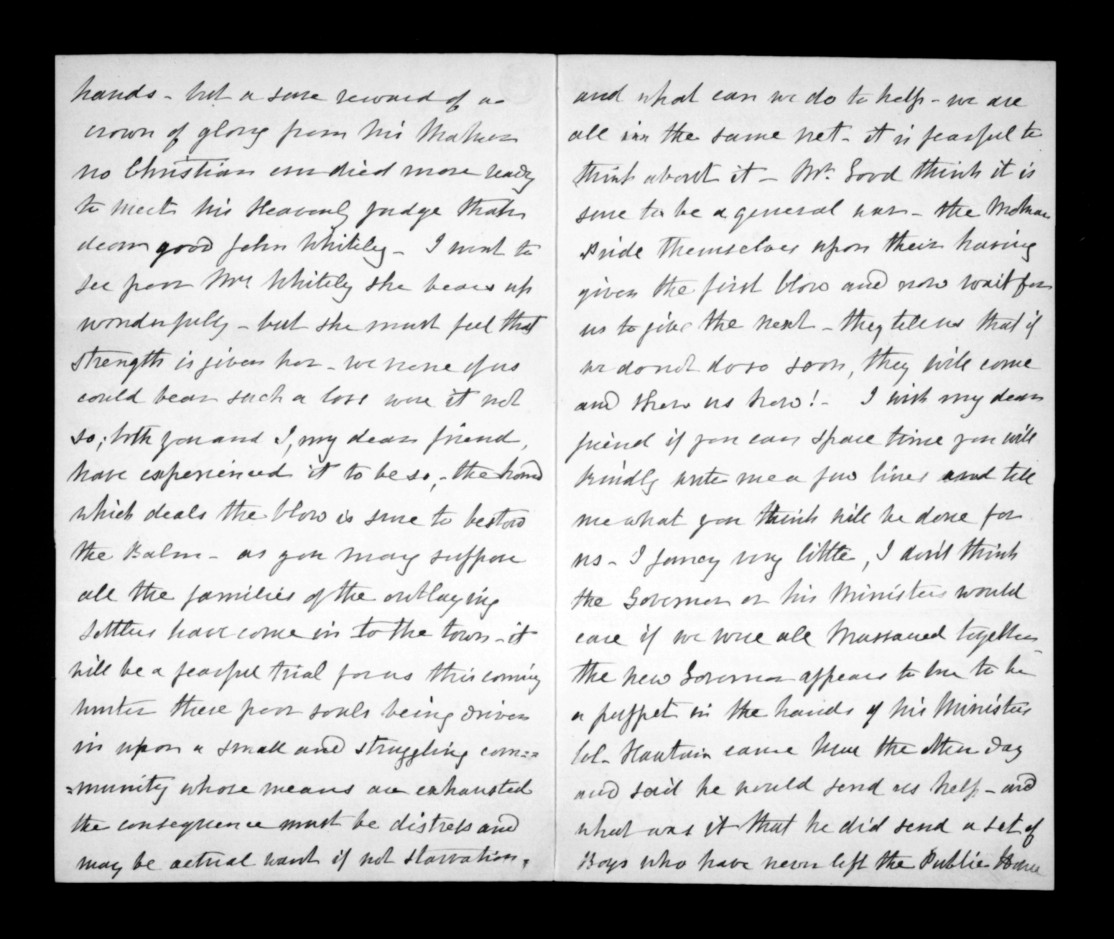 hands - but a sure reward of a
crown of glory from his Maker
no Christian ever died more ready
to meet his Heavenly Judge than
dear good John Whiteley - I went to
see poor Mrs Whiteley she bears up
wonderfully - but she must feel that
strength is given her - we none of us
could bear such a loss were it not
so; both you and I, my dear friend,
have experienced it to be so, - the hand
which deals the blow is sure to bestow
the Balm - as you may suppose
all the families of the outlaying
settlers have come in to the town - it
will be a fearful trial for us this coming
winter these poor souls being driven
in upon a small and struggling com=
=munity whose means are exhausted
the consequence must be distress and
may be actual want if not starvation.
and what can we do to help - we are
all in the same net - it is fearful to
think about it - Mr. Good think it is
sure to be a general war - the Maories
Pride themselves upon their having
given the first blow and now wait for
us to give the next - they tell us that if
we do not do so soon, they will come
and shew us how! - I wish my dear
friend if you can spare time you will
kindly write me a few lines and tell
me what you think will be done for
us - I fancy very little, I don't think
the Governor or his Ministers would
care if we were all Massacred together
the new Governor appears to me to be
a puppet in the hands of his Ministers
Col. Haultain came here the other day
and said he would send us help - and
what was it that he did send a set of
Boys who have never left the Public House